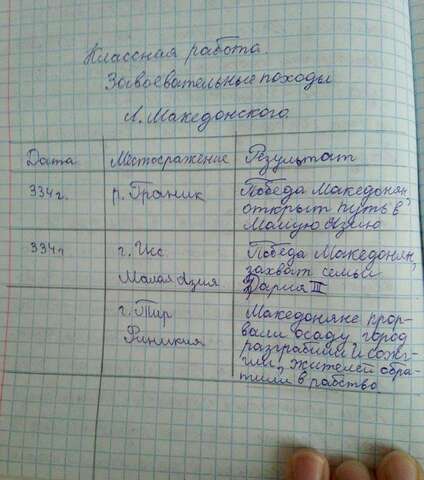 Классная работа.
Завоевательные походы
А. Македонского.
Дата Местосражение Результат
334 г. р. Граник Победа Македонян,
открыт путь в
Малую Азию
334 г. г. Исс Победа Македонян,
Малая Азия захват семьи
Дария III
г. Тир Македоняне прор-
Финикия вали осаду, город
разграбили и сожг-
ли, жителей обра-
тили в рабство